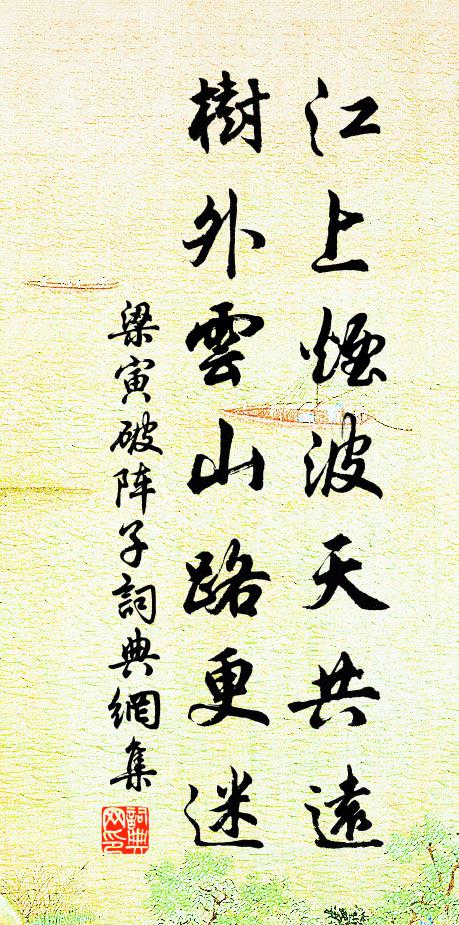 江上煙波天共遠
樹外雲山路更迷
梁寅破阵子詞典網集
詞典網印